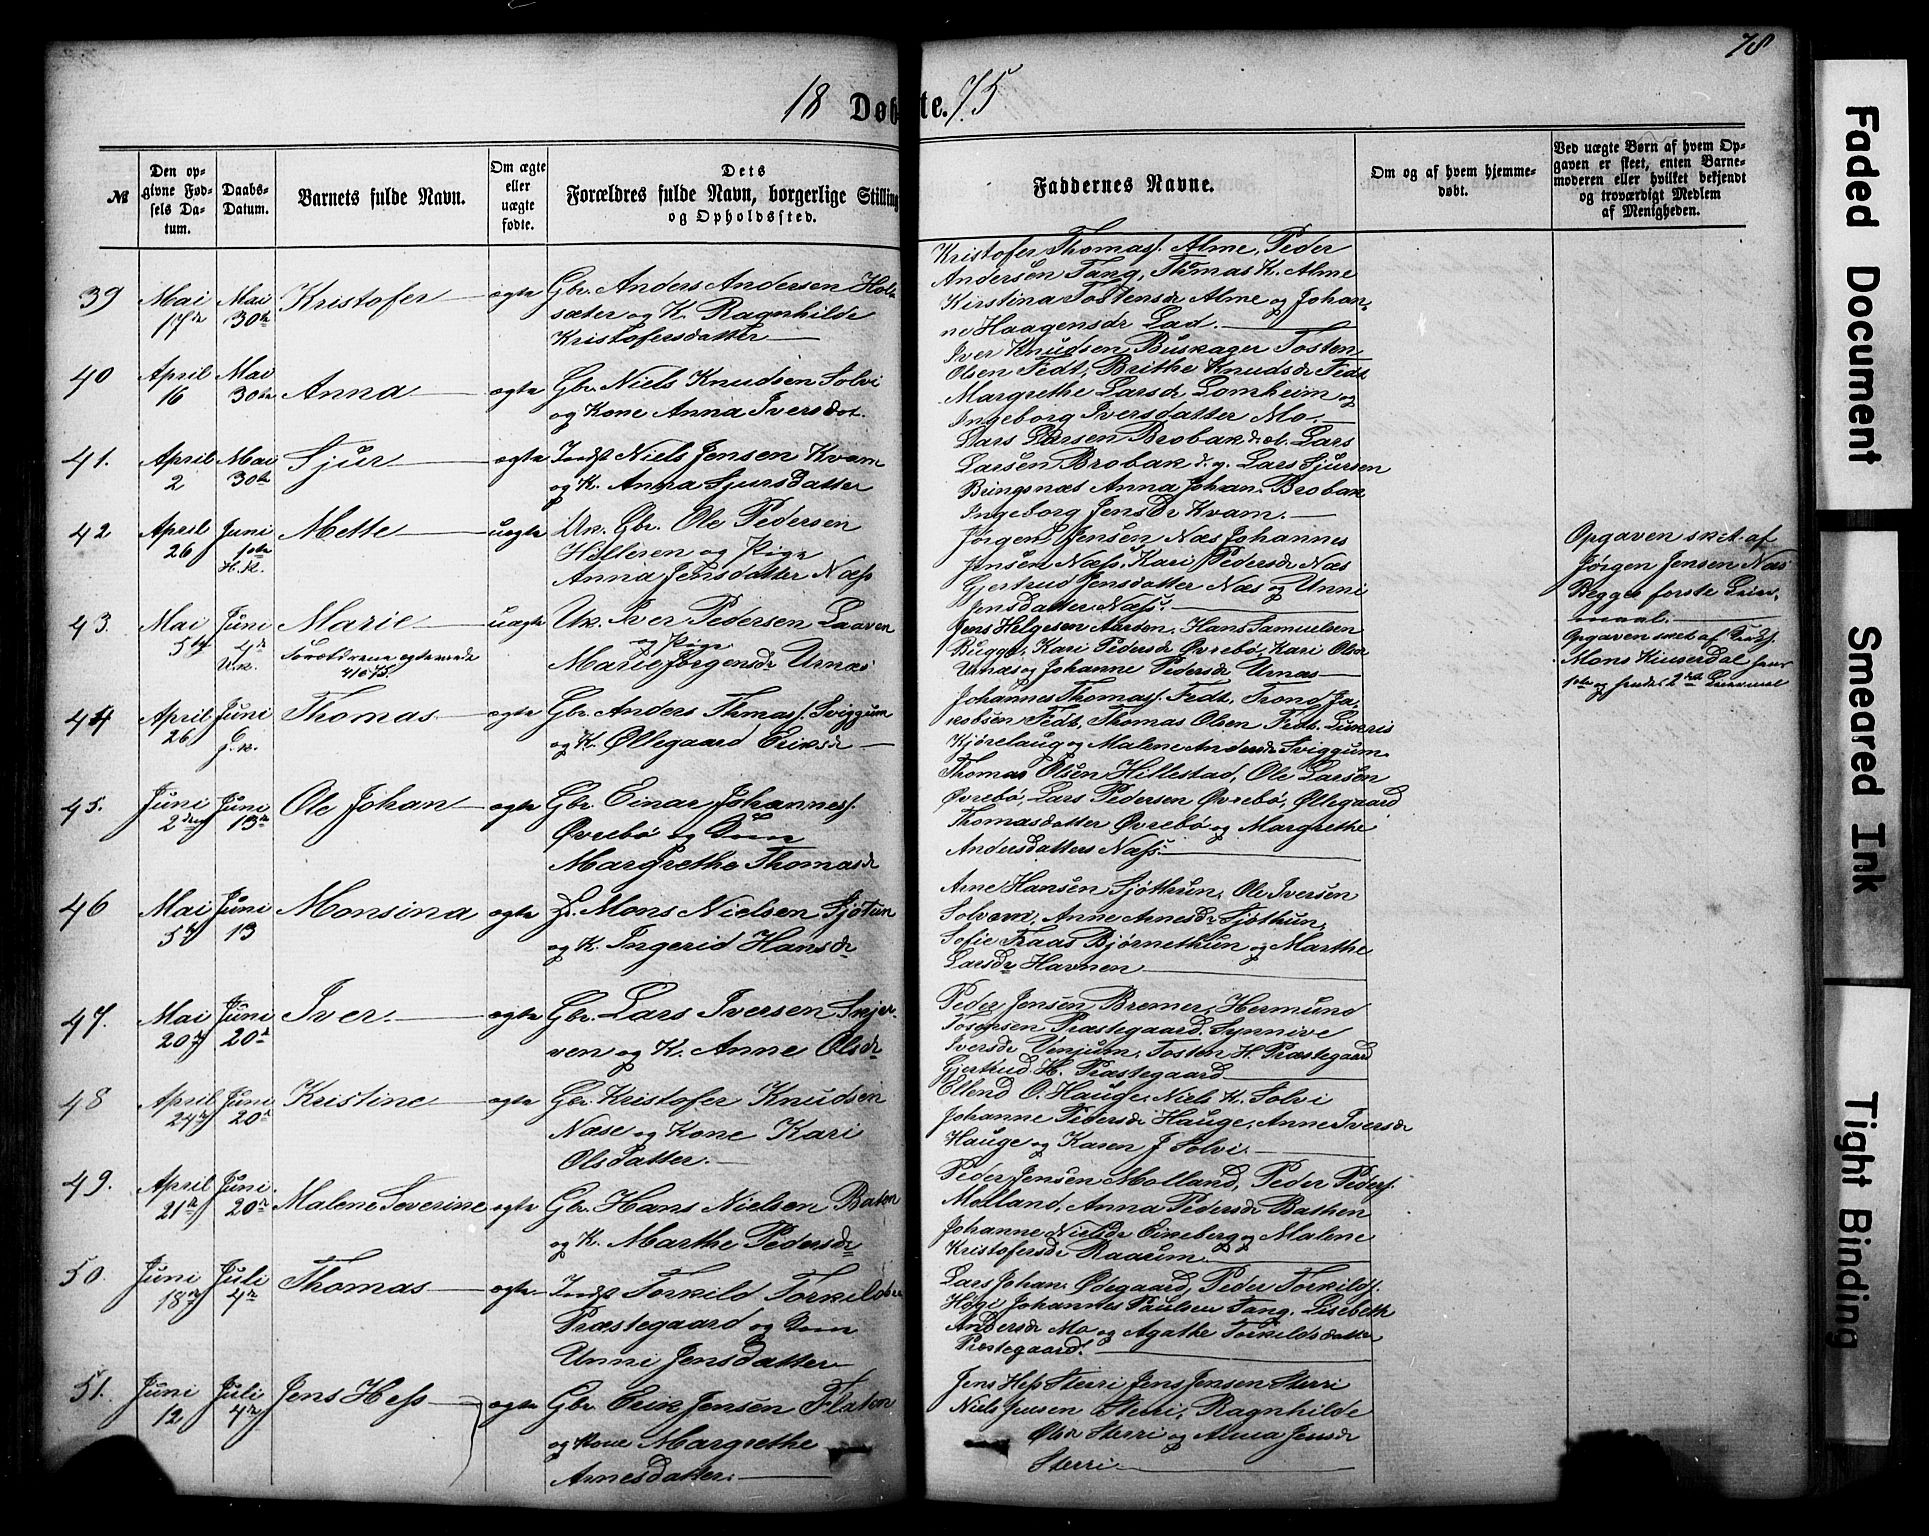 78
18 Døbte. 75
№
Den opgivne Fødsels Datum.
Daabs-Datum.
Barnets fulde Navn.
Om ægte eller uægte fødte.
Dets Forældres fulde Navn, borgerlige Stilling og Opholdssted.
Faddernes Navne.
Om og af hvem hjemmedøbt.
Ved uægte Børn af hvem Opgaven er skeet, enten Barnemoderen eller hvilket bekjendt og troværdigt Medlem af Menigheden.
39 Mai 17de Mai 30te Kristofer ægte
Gbr. Anders Andersen Hol-
sæter og K. Ragnhilde
Kristofersdatter
Kristofer Thomass. Alme, Peder
Andersen Fang, Thomas K. Alme
Kirstina Tostensdr Alme og Johan-
ne Haagensdr Lad.
40 April 16 Mai 30te Anna ægte
Gbr. Niels Knudsen Solvi
og Kone Anna Iversdot.
Iver Knudsen Buskager Tosten
Olsen Fedt, Brithe Knudsdr Fedt
Margrethe Larsdr Lomheim og
Ingeborg Iversdatter Mo.
41. April 2 Mai 30te Sjur ægte
Indst Niels Jensen Kvam
og K. Anna Sjursdatter
Lars Larsen Brobak d. æl. Lars
Larsen Brobak d. y. Lars Sjursen
Bringsnæs Anna Johan. Brobak
Ingeborg Jensdr Kvam.
42 April 26 Juni 1ste H.K. Mette uægte
Uk. Gbr. Ole Pedersen
Hilleren og Pige
Anna Jensdatter Næss
Jørgen Jensen Næs Johannes
Jensen Næss, Kari Pedersdr Næs
Gjertrud Jensdatter Næs og Unni
Jensdatter Næss.
Opgaven sket af
Jørgen Jensen Næs
Begges første Leier-
maal.
43. Mai 5te Juni 4de U.k. Marie uægte
Forældrene ægteviede
4/10 75.
Uk. Iver Pedersen Laaven
og Pige
Marie Jørgensdr Urnæs
Jens Helgesen Aarden, Hans Samuelsen
Bugge, Kari Pedersdr Øvrebø, Kari Olsdr
Urnæs og Johanne Pedersdr Urnæs
Opgaven skeet af
Mons Kinserdal
1ste og 2det Leiermaal
44 April 26 Juni Thomas ægte
Gbr. Anders Thomass. Sviggum
og K. Øllegaard Eriksdr
Johannes Thomass. Fedt, Trond Ja-
kobsen Fedt, Thomas Olsen Fedt,
Kjørelaug og Malene Andersdr Sviggum
45. Juni 2den Juni 13de Ole Johan ægte
Gbr Einar Johanness.
Øvrebø og Kone
Margrethe Thomasdr
Thomas Olsen Hillestad, Ole Larsen
Øvrebø, Lars Pedersen Øvrebø, Øllegaard
Thomasdatter Øvrebø og Margrethe
Andersdatters Næss.
46 Mai 5te Juni 13 Monsina ægte
Mons Nielsen Sjøtun
og K. Ingerid Hansdr
Arne Hansen Sjøthun, Ole Iversen
Solvorn, Anne Arnesdr Sjøthun,
Sofie Fraas Bjørnethun og Marthe
Larsdr Havnen
47. Mai 20de Juni 20de Iver. ægte
Gbr. Lars Iversen Snjer-
ven og K. Anne Olsdr
Peder Jensen Bremer, Hermund
Tostensen Præstegaard. Synnive
Iversdr Venjum, Tosten H. Præstegaard
Gjertrud H. Præstegaard
48 April 24de Juni 20de Kristine ægte
Gbr. Kristofer Knudsen
Næse og Kone Kari
Olsdatter.
Ellend O. Hauge, Niels K. Solvi
Johanne Pedersdr Hauge, Anne Iversdr
Hauge og Karen J Solvi.
49. April 21de Juni 20de Malene Severine ægte
Gbr. Hans Nielsen Baten
og K. Marthe Pedersdr
Peder Jensen Molland, Peder Peders.
Molland, Anna Pedersdr Bathen
Johanne Nielsdr Eikeberg og Malene
Kristofersdr Raaum
50. Juni 18de Juli 4de Thomas ægte
Indst Torkild Torkildsen
Præstegaard og Kone
Unni Jensdatter
Lars Johan. Ødegaard, Peder Torkilds.
Høgi Johannes Paulsen Fang, Lisebeth
Andersdr Mo og Agathe Torkildsdatter
Præstegaard.
51. Juni 12 Juli 4de Jens Hess ægte
Gbr. Erik Jensen Flaten
og Kone Margrethe
Arnesdatter.
Jens Hess Sterri Jens Jensen Sterri
Niels Jensen Sterri, Ragnhilde
Olsdr Sterri og Alma Jensdr
Sterri.
Faded Document
Smeared Ink
Tight Binding